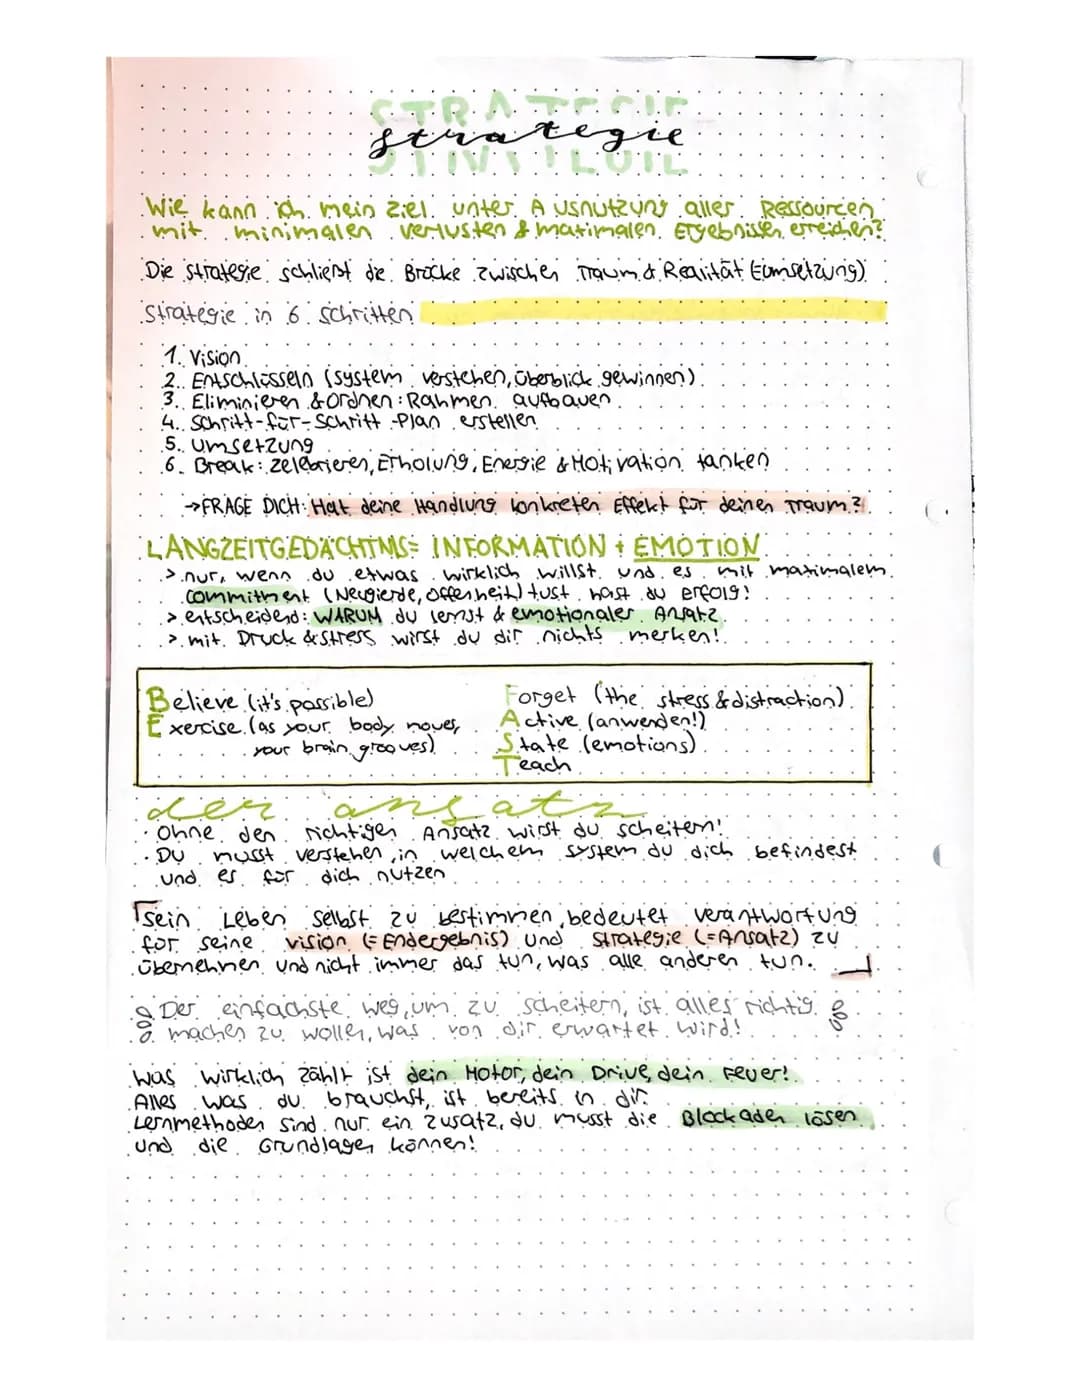 STRATEGIE
strategie
Wie kann ich mein Ziel unter Ausnutzung aller Ressourcen
mit minimalen Verlusten & maximalen Ergebnissen erreichen?
Die Strategie schließt die Brücke zwischen Traum & Realität (Umsetzung)
Strategie in 6 Schritten
1. Vision
2. Entschlüsseln (System verstehen, Überblick gewinnen)
3. Eliminieren & Ordnen: Rahmen aufbauen
4. Schritt-für-Schritt-Plan erstellen
5. Umsetzung
6. Break: zelebrieren, Erholung, Energie & Motivation tanken
→FRAGE DICH: Hat deine Handlung konkreten Effekt für deinen Traum?
LANGZEITGEDÄCHTNIS = INFORMATION + EMOTION
> nur, wenn du etwas wirklich willst und es mit maximalem
commitment (Neugierde, Offenheit) tust, hast du Erfolg!
> entscheidend: WARUM du lernst & emotionaler Ansatz
> mit Druck & Stress wirst du dir nichts merken!
Believe (it's possible)
Exercise (as your body moves,
your brain grooves)
Forget (the stress & distraction)
Active (anwenden!)
State (emotions)
Teach
der ansatz
· Ohne den richtigen Ansatz wirst du scheitern!
· Du musst verstehen, in welchem System du dich befindest
und es für dich nutzen
sein Leben selbst zu bestimmen, bedeutet Verantwortung
für seine Vision (=Endergebnis) und Strategie (=Ansatz) zu
übernehmen und nicht immer das tun, was alle anderen tun.
Der einfachste Weg, um zu scheitern, ist alles richtig
machen zu wollen, was von dir erwartet wird!
Was wirklich zählt ist dein Motor, dein Drive, dein Feuer!
Alles was du brauchst, ist bereits in dir.
Lernmethoden sind nur ein Zusatz, du musst die Blockaden lösen
und die Grundlagen können!